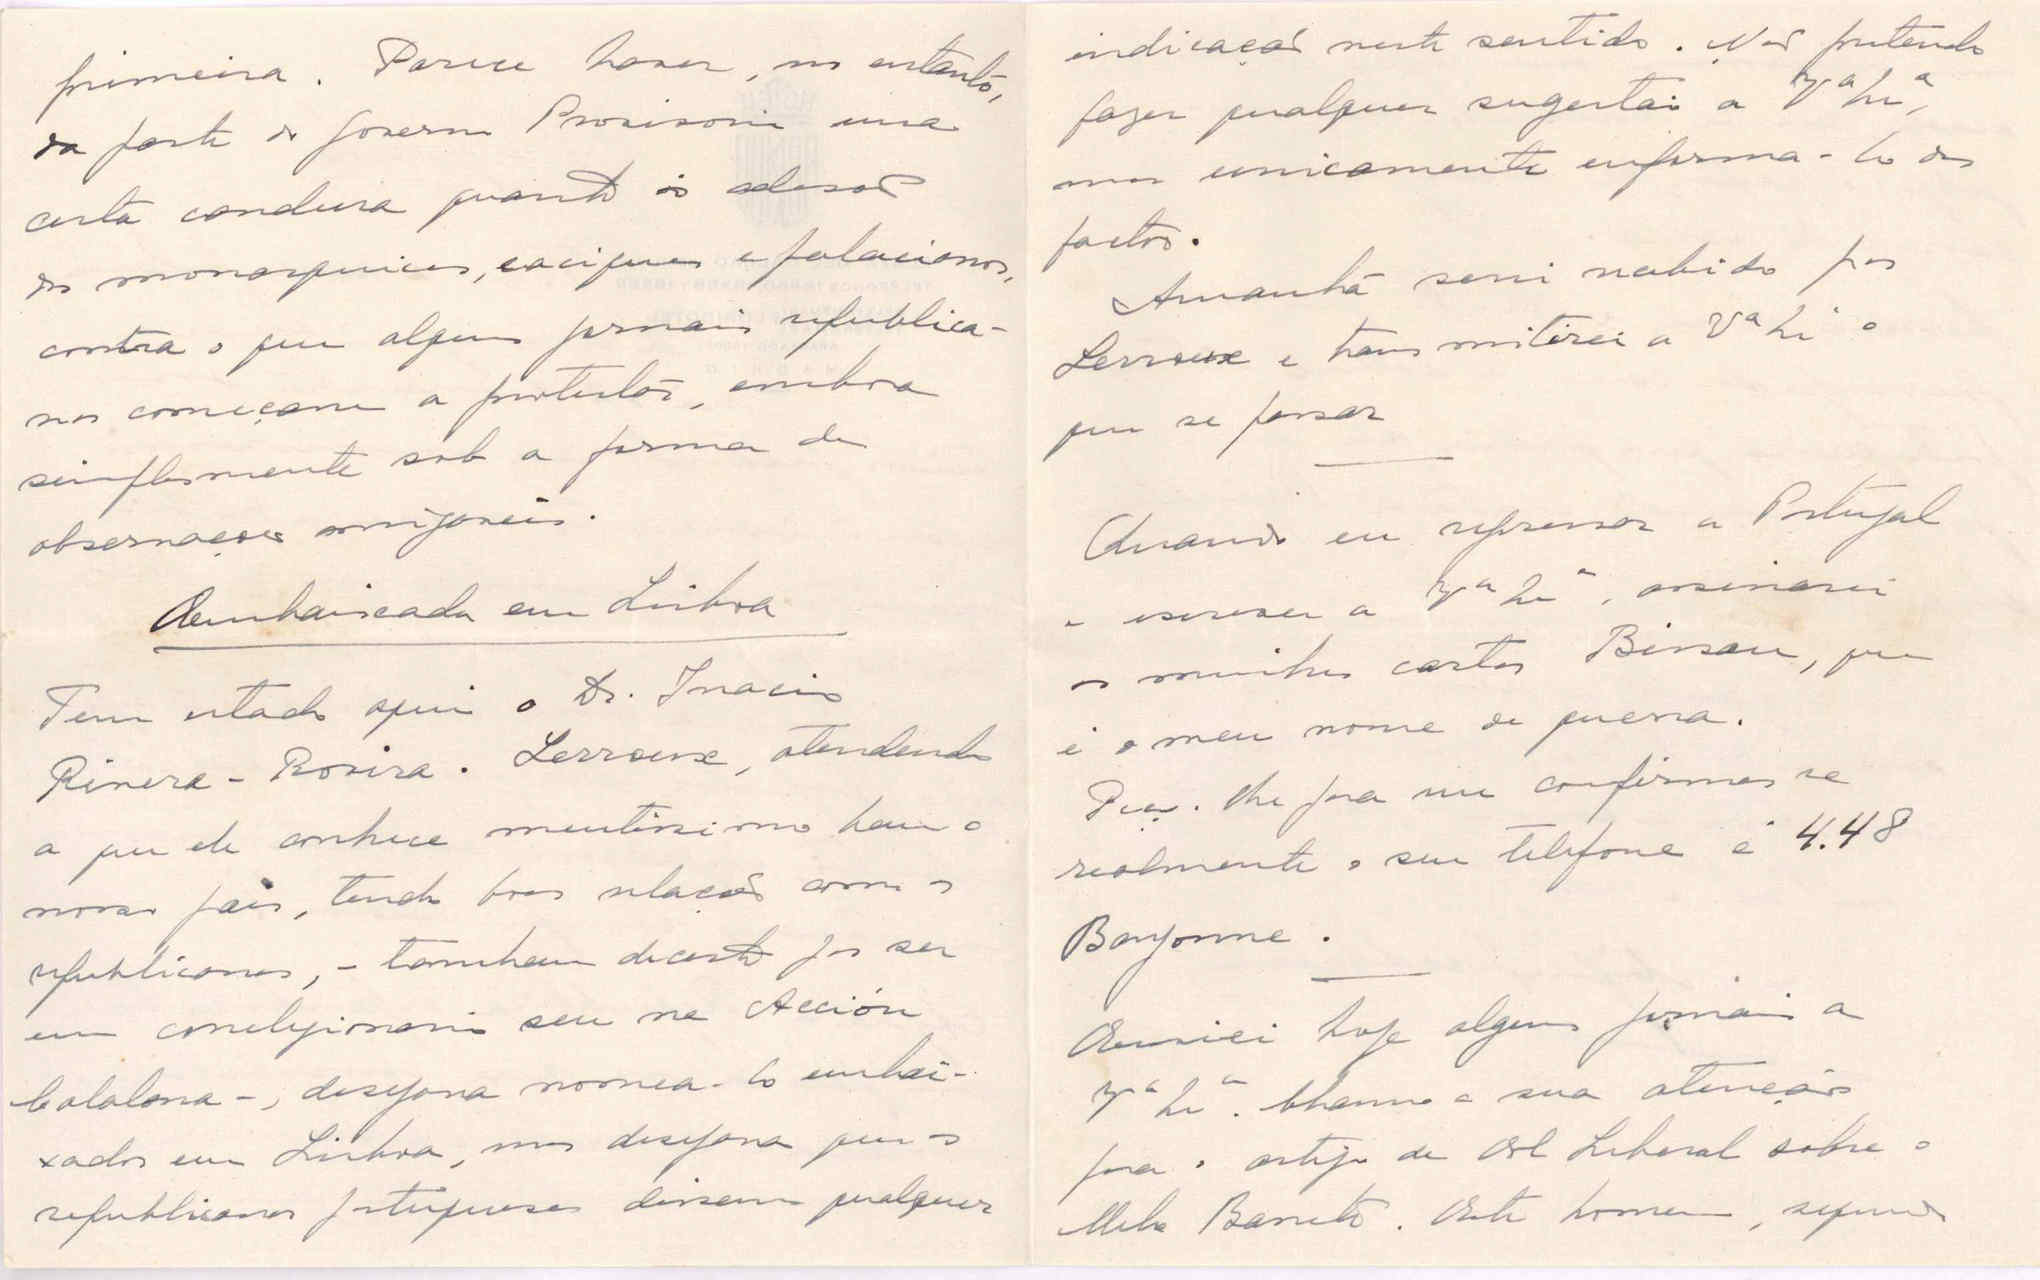 primeira. Parece haver, no entanto,
da parte do Governo Provisorio uma
certa candura quanto ás adesões
dos monarquicos, caciques e palacianos,
contra o que alguns jornais republica-
nos começam a protestar, embora
simplesmente sob a forma de
observações amigaveis.
Embaixada em Lisboa
Tem estado aqui o Dr. Inacio
Rivera-Rovira. Lerroux, atendendo
a que ele conhece muitissimo bem o
nosso país, tendo boas relações com os
republicanos, - tambem decerto por ser
um correligionario seu na Acción
Catalana -, desejava nomea-lo embai-
xador em Lisboa, mas desejava que os
republicanos portugueses dissessem qualquer
indicação neste sentido. Não pretendo
fazer qualquer sugestão a Vª Exª,
mas unicamente informa-lo dos
factos.
Amanhã serei recebido por
Lerroux e transmitirei a Vª Exª o
que se passar
Quando eu regressar a Portugal
e escrever a Vª Exª, assinarei
as minhas cartas Bissau, que
é o meu nome de guerra.
Peço-lhe para me confirmar se
realmente o seu telefone é 4.48
Bayonne.
Enviei hoje alguns jornais a
Vª Exª. Chamo a sua atenção
para o artigo de El Liberal sobre o
Melo Barreto. Este homem, segundo